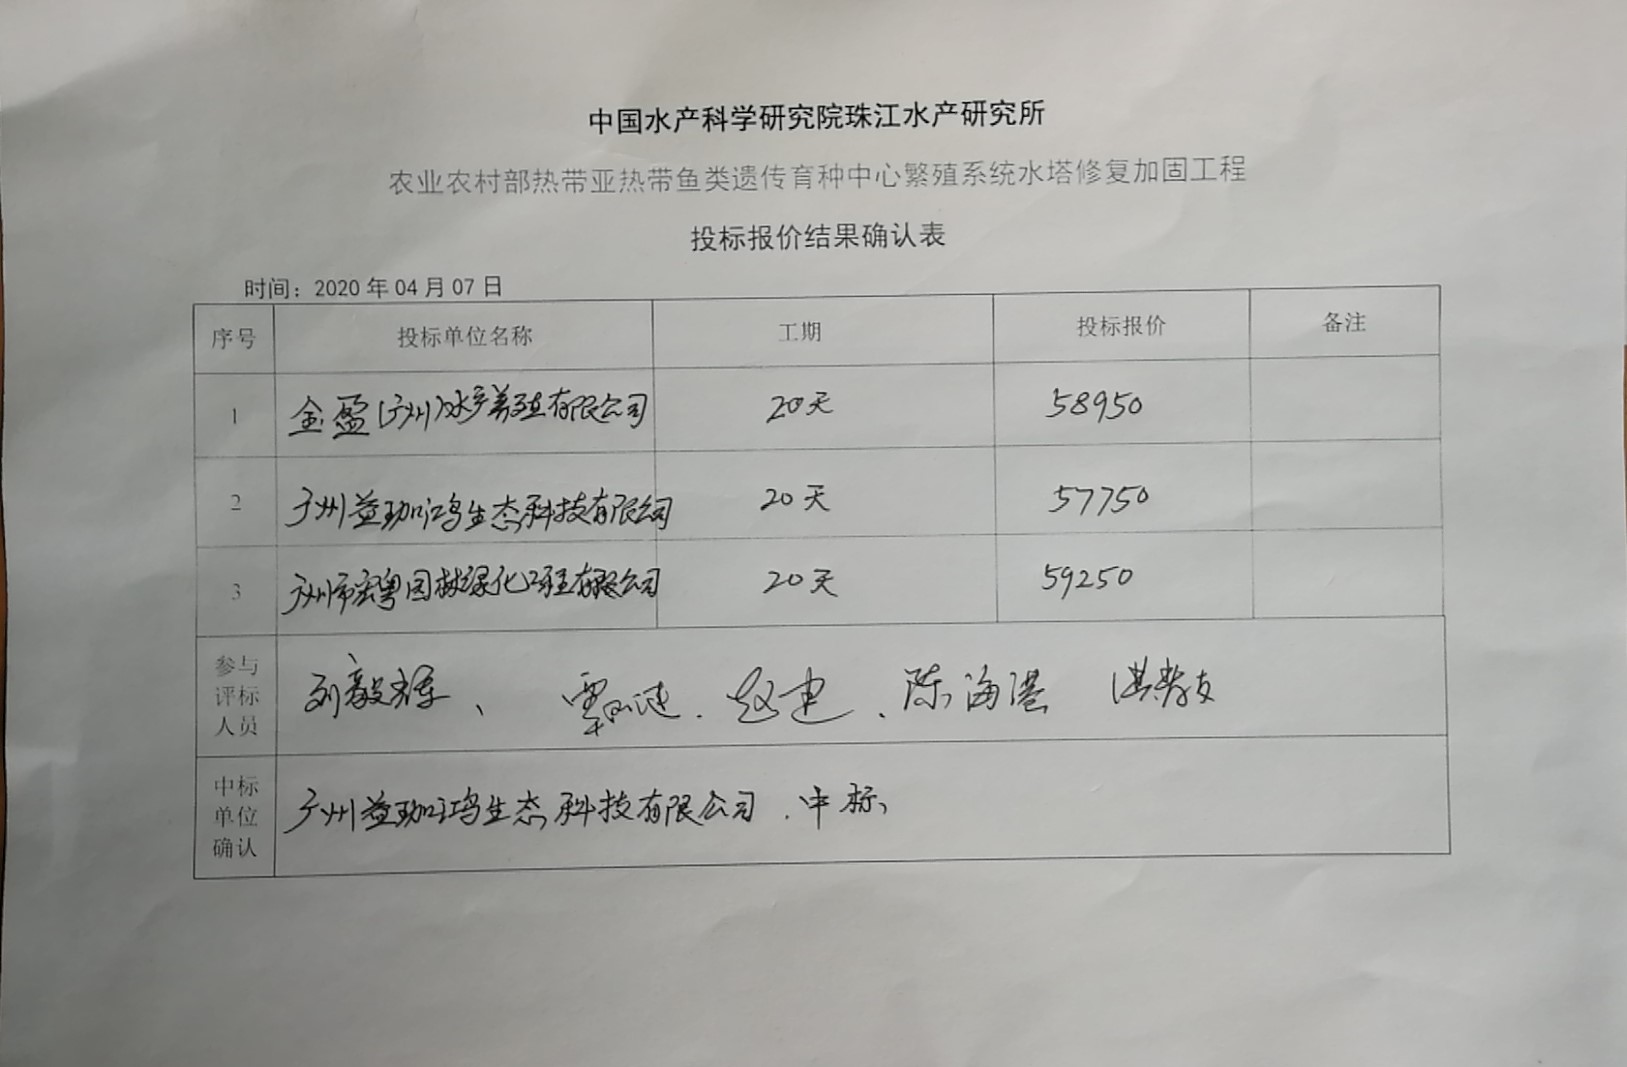 中国水产科学研究院珠江水产研究所
农业农村部热带亚热带鱼类遗传育种中心繁殖系统水塔修复加固工程
投标报价结果确认表
时间：2020 年 04 月 07 日
序号 投标单位名称 工期 投标报价 备注
1 金盈(广州)水产养殖有限公司 20天 58950
2 广州益珈鸿生态科技有限公司 20天 57750
3 广州市宏粤园林绿化工程有限公司 20天 59250
参与
评标
人员
刘毅辉、 赵建、陈海港
中标
单位
确认
广州益珈鸿生态科技有限公司、中标、